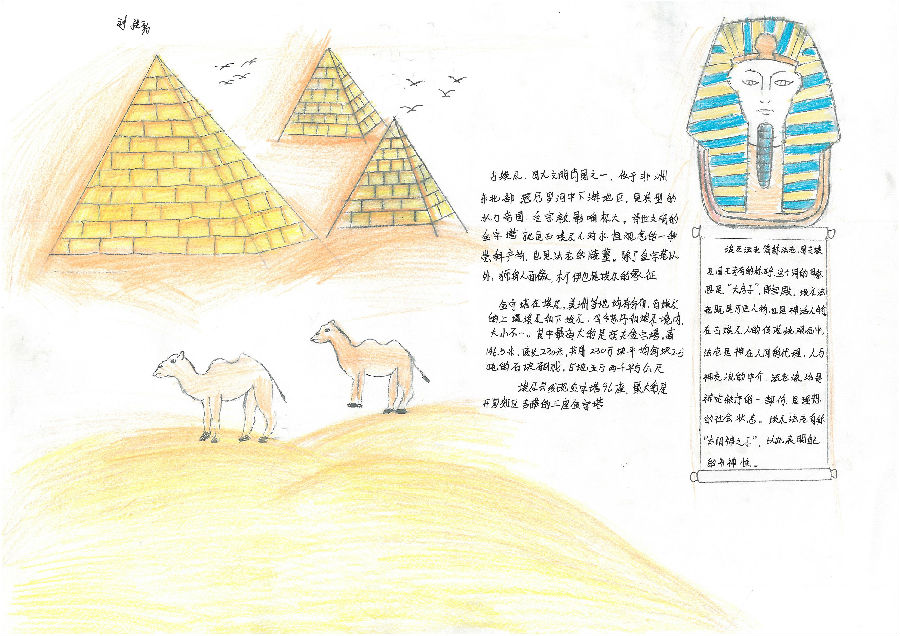 古埃及，四大文明古国之一，位于非洲
东北部尼罗河中下游地区，是典型的
奴隶制国家，宗教影响极大，诗世文明的
金字塔就是古埃及人对永恒观念的一种
崇拜产物，也是法老的陵墓。除了金字塔以
外，狮身人面像、木乃伊也是埃及的象征
金字塔在埃及、美洲等地均有分布，古埃及
的上埃及和下埃及，今苏丹和埃及境内，
大小不一。其中最高大的是胡夫金字塔，高
146.5米，底长230米，共用230万块平均每块2.5
吨的石块砌成，占地五万两千平方公尺
埃及共发现金字塔96座，最大的是
开罗郊区吉萨的三座金字塔
埃及法老简称法老，是古埃
及国王专有的称呼，这个词的意思
思是“大房子”，即宫殿，埃及法
老既是历史人物，也是神话人物，
在古埃及人的传说观念中，
法老是神在人间的代理，人与
神交流的中介，法老统治是
神定秩序的一部份，是理想
的社会状态。埃及法老自称
“太阳神之子”，以此表明自己
的神性。